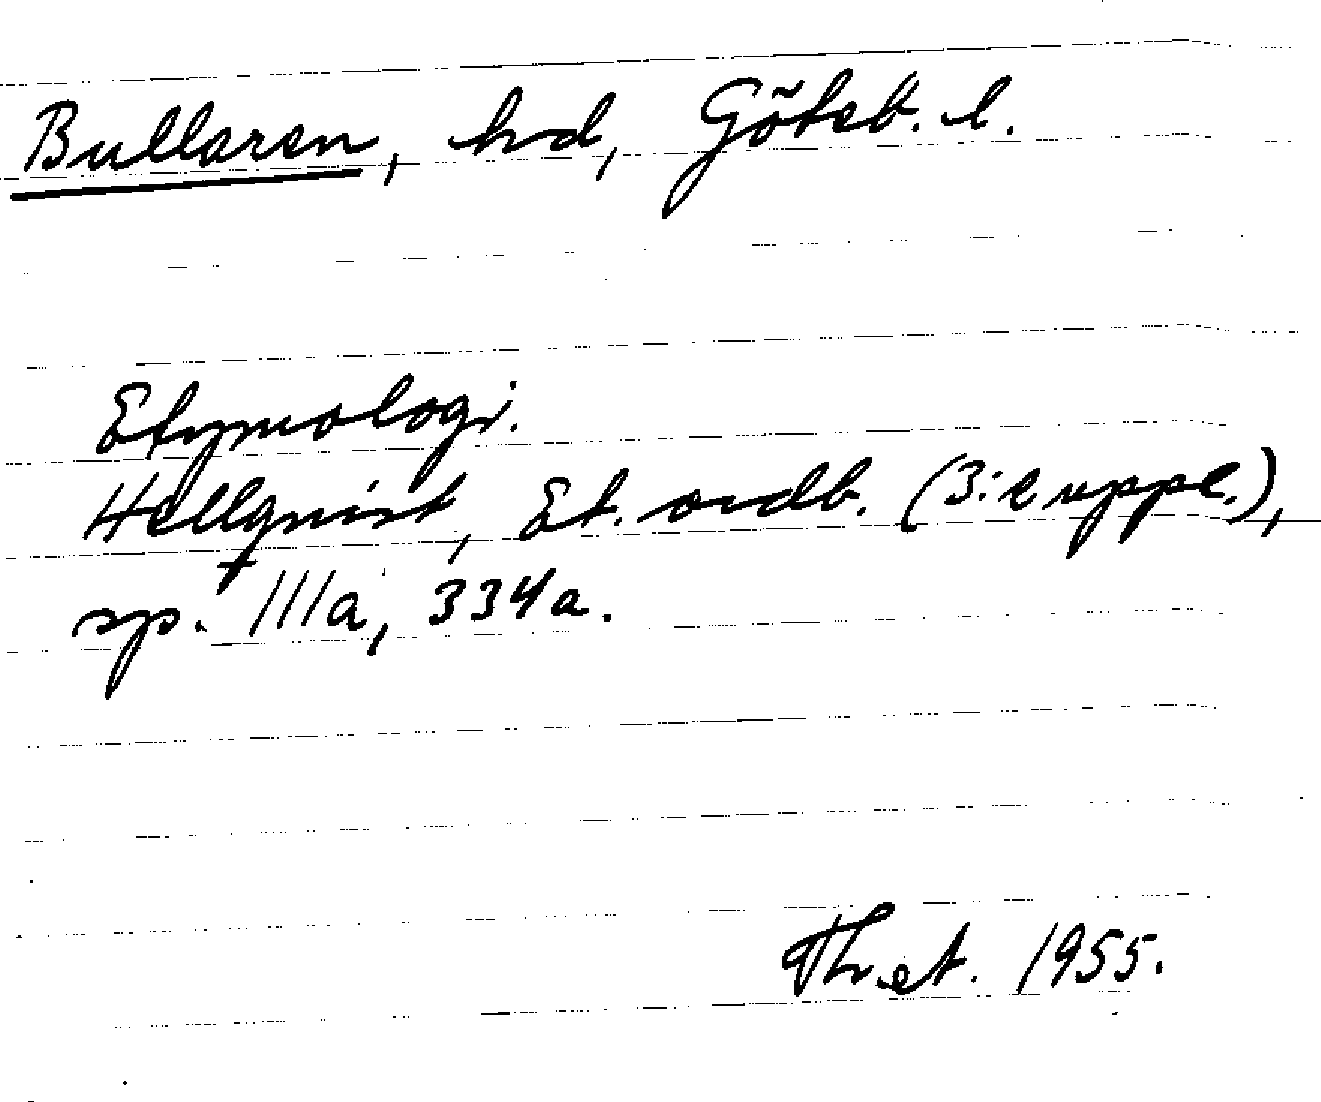 Bullaren, hd, Göteb. l.
Etymologi.
Hellquist, Et. ordb. (3:e uppl.),
sp. 111a, 334a.
1955.